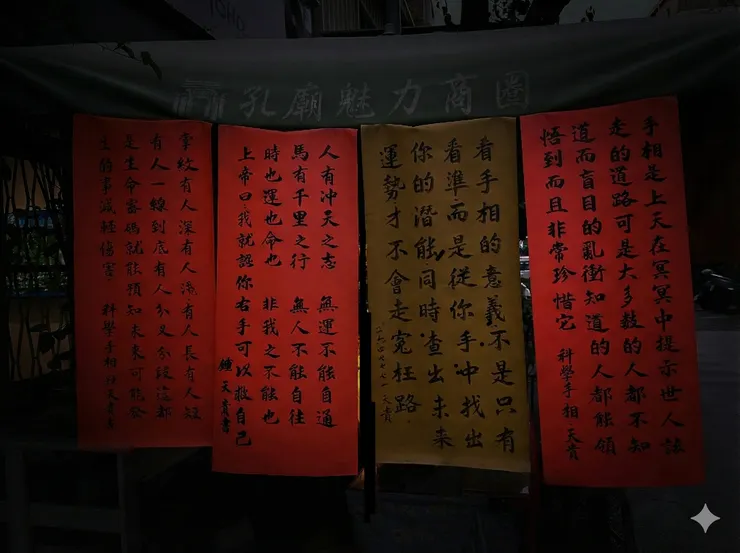 孔廟魅力商圈
手相是上天在冥冥中提示世人該
走的道路可是大多数的人都不知
道而盲目的亂衝知道的人都能領
悟到而且非常珍惜它 科學手相 天貴
看手相的意義不是只有
看準而是從你手冲找出
你的潛能同時查出未来
運勢才不會走冤枉路
天貴
人有冲天之志 無運不能自通
馬有千里之行 無人不能自往
時也運也命也 非我之不能也
上帝曰我就認你右手可以救自己
鍾天貴書
掌紋有人深有人淺有人長有人短
有人一線到底有人分叉分段這都
是生命密碼就能預知未来可能發
生的事減輕傷害 科學手相 天貴書